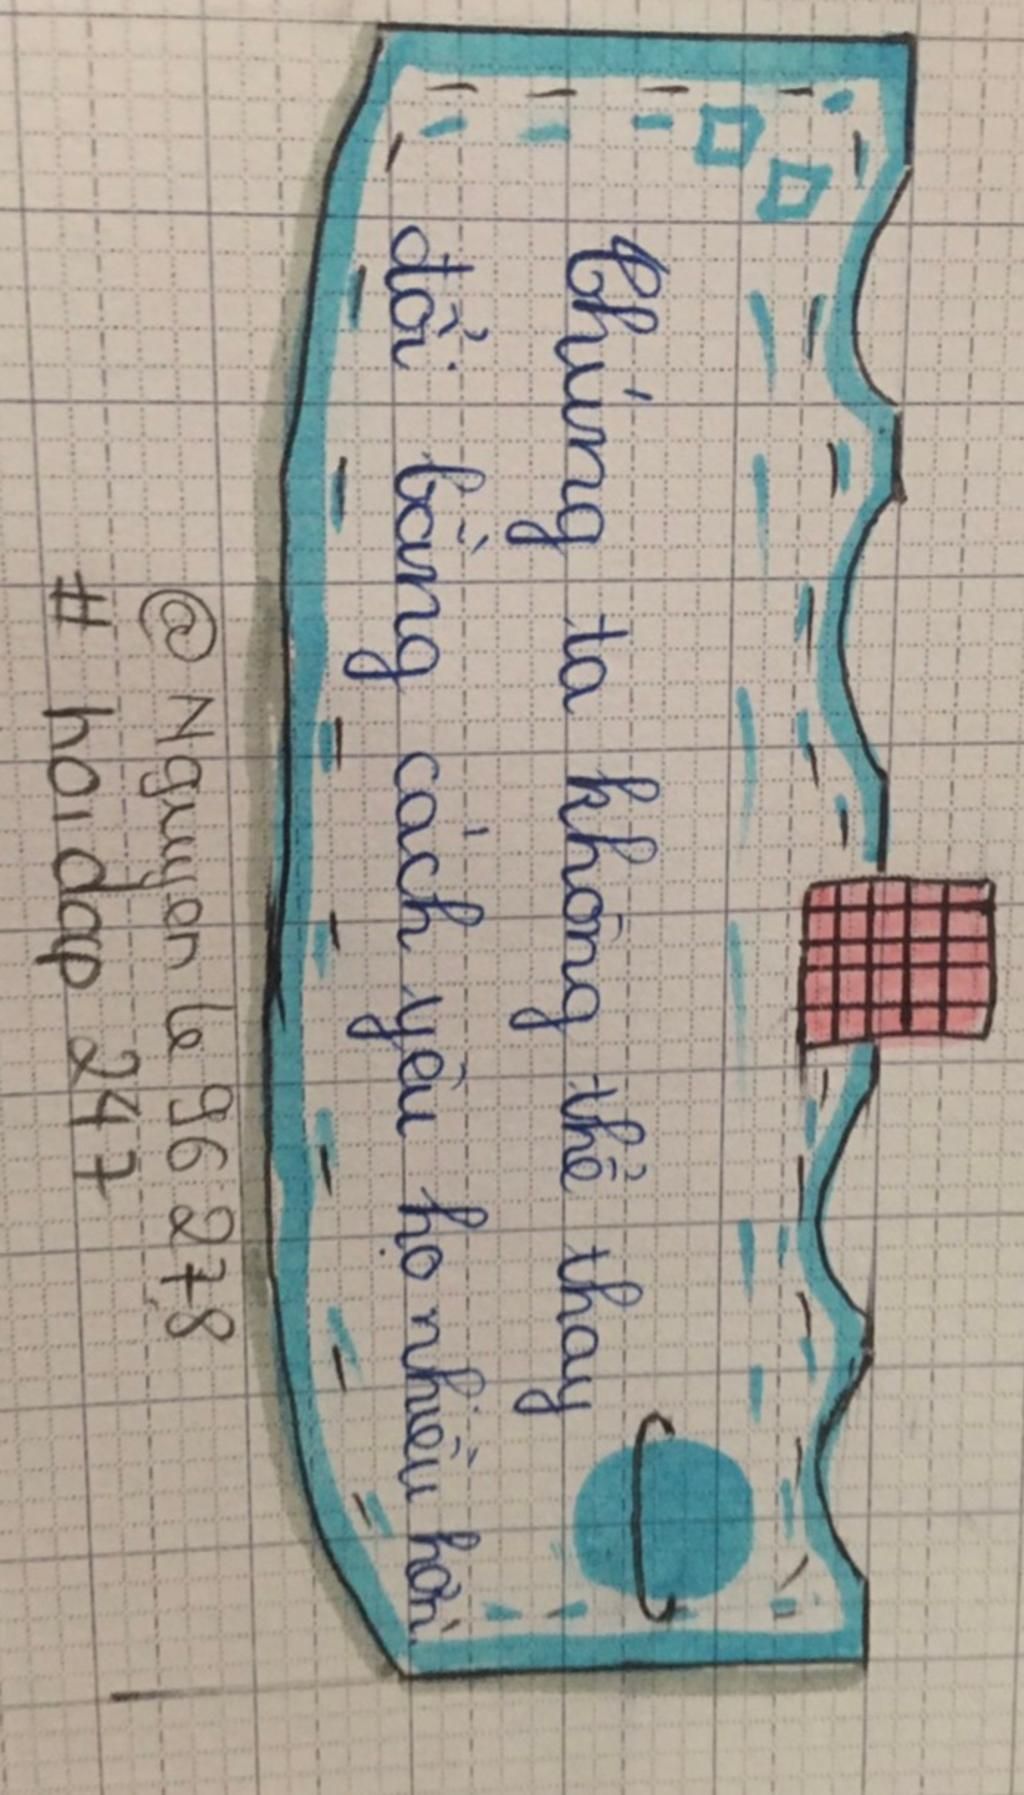 Chúng ta không thể thay
đổi bằng cách yêu họ nhiều hơn.
@ Nguyen le 96278
# hoidap 247